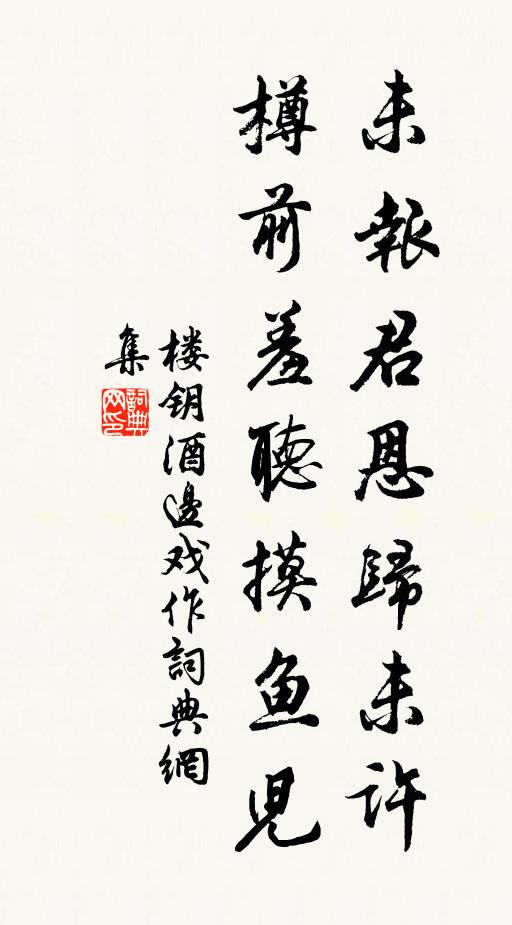 未報君恩歸未許
樽前羞聽摸鱼兒
楼钥酒邊戏作詞典網
集
詞典
网印